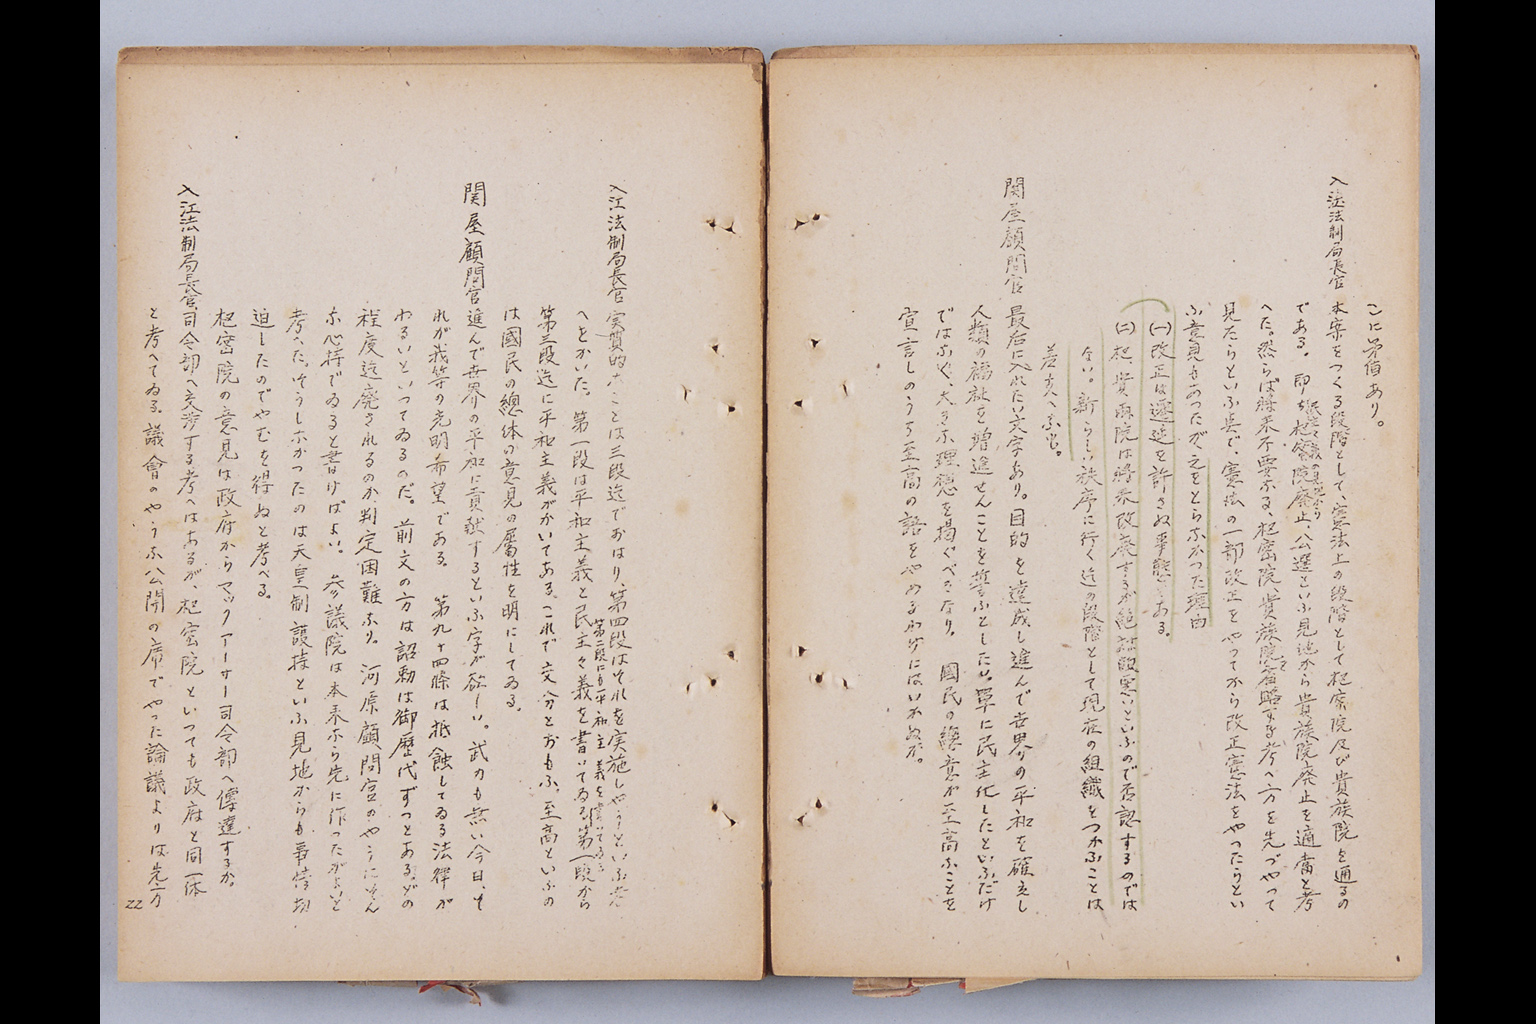 こに矛盾あり。
入江法制局長官 本案をつくる段階として、憲法上の段階として枢密院及び貴族院を通るの
である。即ち枢密院廃止、公選といふ見地から貴族院廃止を適当と考
へた。然らば将来不要なる、枢密院、貴族院を省略する考へ方を先づやつて
見たらといふ点で、憲法の一部改正をやつてから改正憲法をやつたらとい
ふ意見もあつたが、之をとらなかつた理由
(一)改正は遷延を許さぬ事態にある。
(二)枢、貴両院は将来改廃するが絶対に悪いといふので否認するのでは
ない。新らしい秩序に行く迄の段階として現在の組織をつかふことは
差支へなし。
関屋顧問官 最后に入れたい文字あり。目的を達成し進んで世界の平和を確立し
人類の福祉を増進せんことを誓ふとしたい。単に民主化したといふだけ
ではなく、大きな理想を掲ぐべきなり。国民の総意が至高なことを
宣言しのうち至高の語をやめるわけにはいかぬか。
入江法制局長官 実質的なことは三段迄でおはり、第四段はそれを実施しやうといふ考
へをかいた。第一段は平和主義と民主々義を書いてゐる。第一段から
第二段にも平和主義を書いてゐる
第三段迄に平和主義がかいてある。これで充分とおもふ。至高といふの
は國民の總体の意見の屬性を明にしてゐる。
関屋顧問官 進んで世界の平和に貢献するといふ字が欲しい。武力も無い今日、そ
れが我等の光明希望である。第九十四條は抵触してゐる法律が
わるいといつてゐるのだ。前文の方は詔勅は御歴代ずつとある。どの
程度迄廃されるのか判定困難なり。河原顧問官のやうにそん
な心持でゐると書けばよい。参議院は本来なら先に作つたがよいと
考へた。そうしなかつたのは天皇制護持といふ見地からも事情切
迫したのでやむを得ぬと考へる。
枢密院の意見は政府からマックアーサー司令部へ傳達するか。
入江法制局長官 司令部へ交渉する考へはあるが枢密院といつても政府と同一体
と考へてゐる。議會のやうな公開の席でやつた論議よりは先方
22